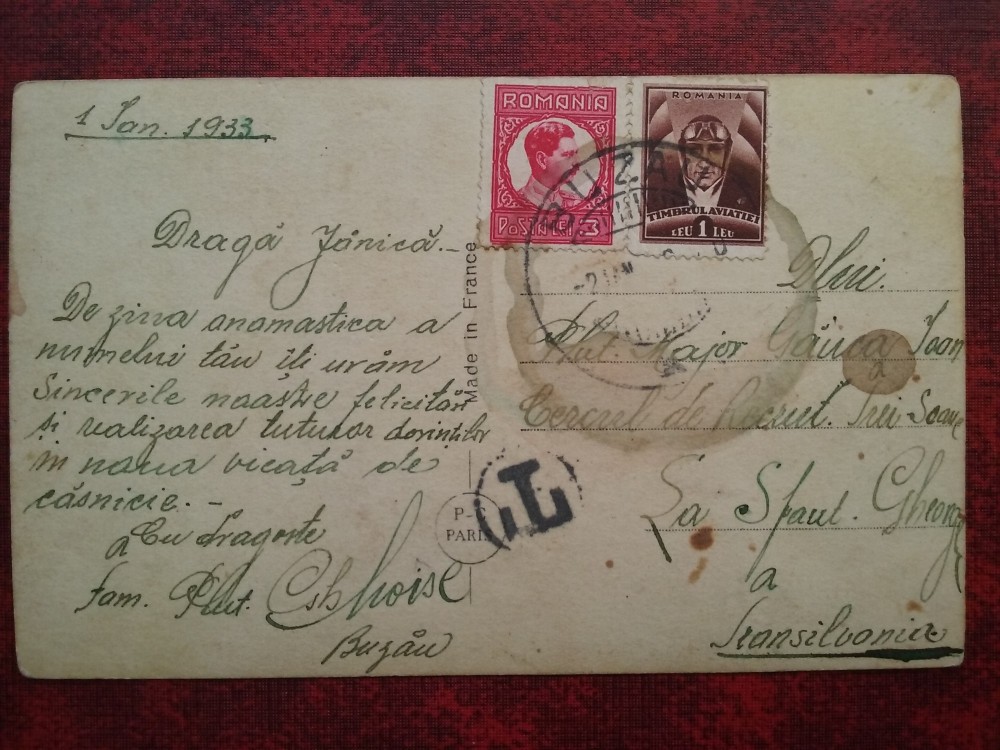 1 Ian. 1933.
Dragă Jănică.-
De ziua anomastica a
numelui tău îți urăm
Sincerile noastre felicitări
și realizarea tuturor dorintelor
în noua vieață de
căsnicie.-
Cu dragoste
Fam. Plut.
Buzău
Made in France
P-C
PARIS
ROMANIA
POSTA LEI 3
ROMANIA
TIMBRUL AVIATIEI
LEU 1 LEU
BUZAU
-2 IAN
T
Dlui.
Plut. Major Găuca Ioan
a
Cercul de Recrut. Trei Scaune
La Sfaut. Gheorg
a
Transilvania